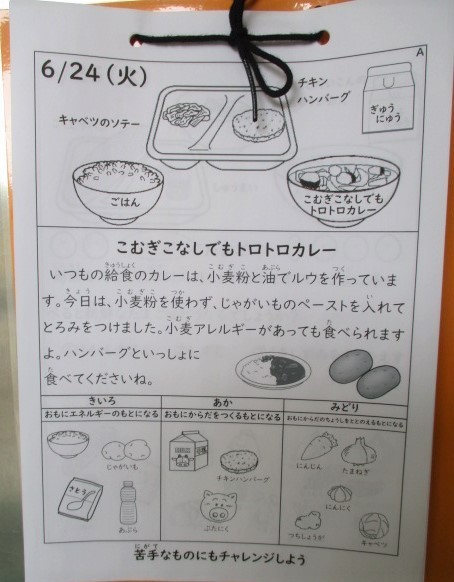 A
6/24(火)
チキン
ハンバーグ
ぎゅう
にゅう
キャベツのソテー
ごはん
こむぎこなしでも
トロトロカレー
こむぎこなしでもトロトロカレー
いつもの給食のカレーは、小麦粉と油でルウを作っていま
す。今日は、小麦粉を使わず、じゃがいものペーストを入れて
とろみをつけました。小麦アレルギーがあっても食べられます
よ。ハンバーグといっしょに
食べてくださいね。
きいろ
おもにエネルギーのもとになる
あか
おもにからだをつくるもとになる
みどり
おもにからだのちょうしをととのえるもとになる
じゃがいも
さとう
あぶら
チキンハンバーグ
ぶたにく
にんじん
たまねぎ
にんにく
つちしょうが
キャベツ
苦手なものにもチャレンジしよう